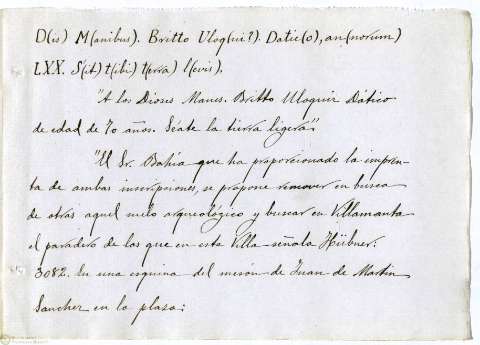 D(is) M(anibus). Britto Uloq(ui?). Datic(o), an(norum)
LXX. S(it) t(ibi) t(erra) l(evis).
"A los Dioses Manes. Britto Uloquir Dático
de edad de 70 años. Séate la tierra ligera"
"El Sr. Bahía que ha proporcionado la impron-
ta de ambas inscripciones, se propone remover en busca
de otras aquel suelo arqueológico y buscar en Villamanta
el paradero de las que en esta Villa señala Hübner.
3082. En una esquina del mesón de Juan de Martin
Sanchez en la plaza: